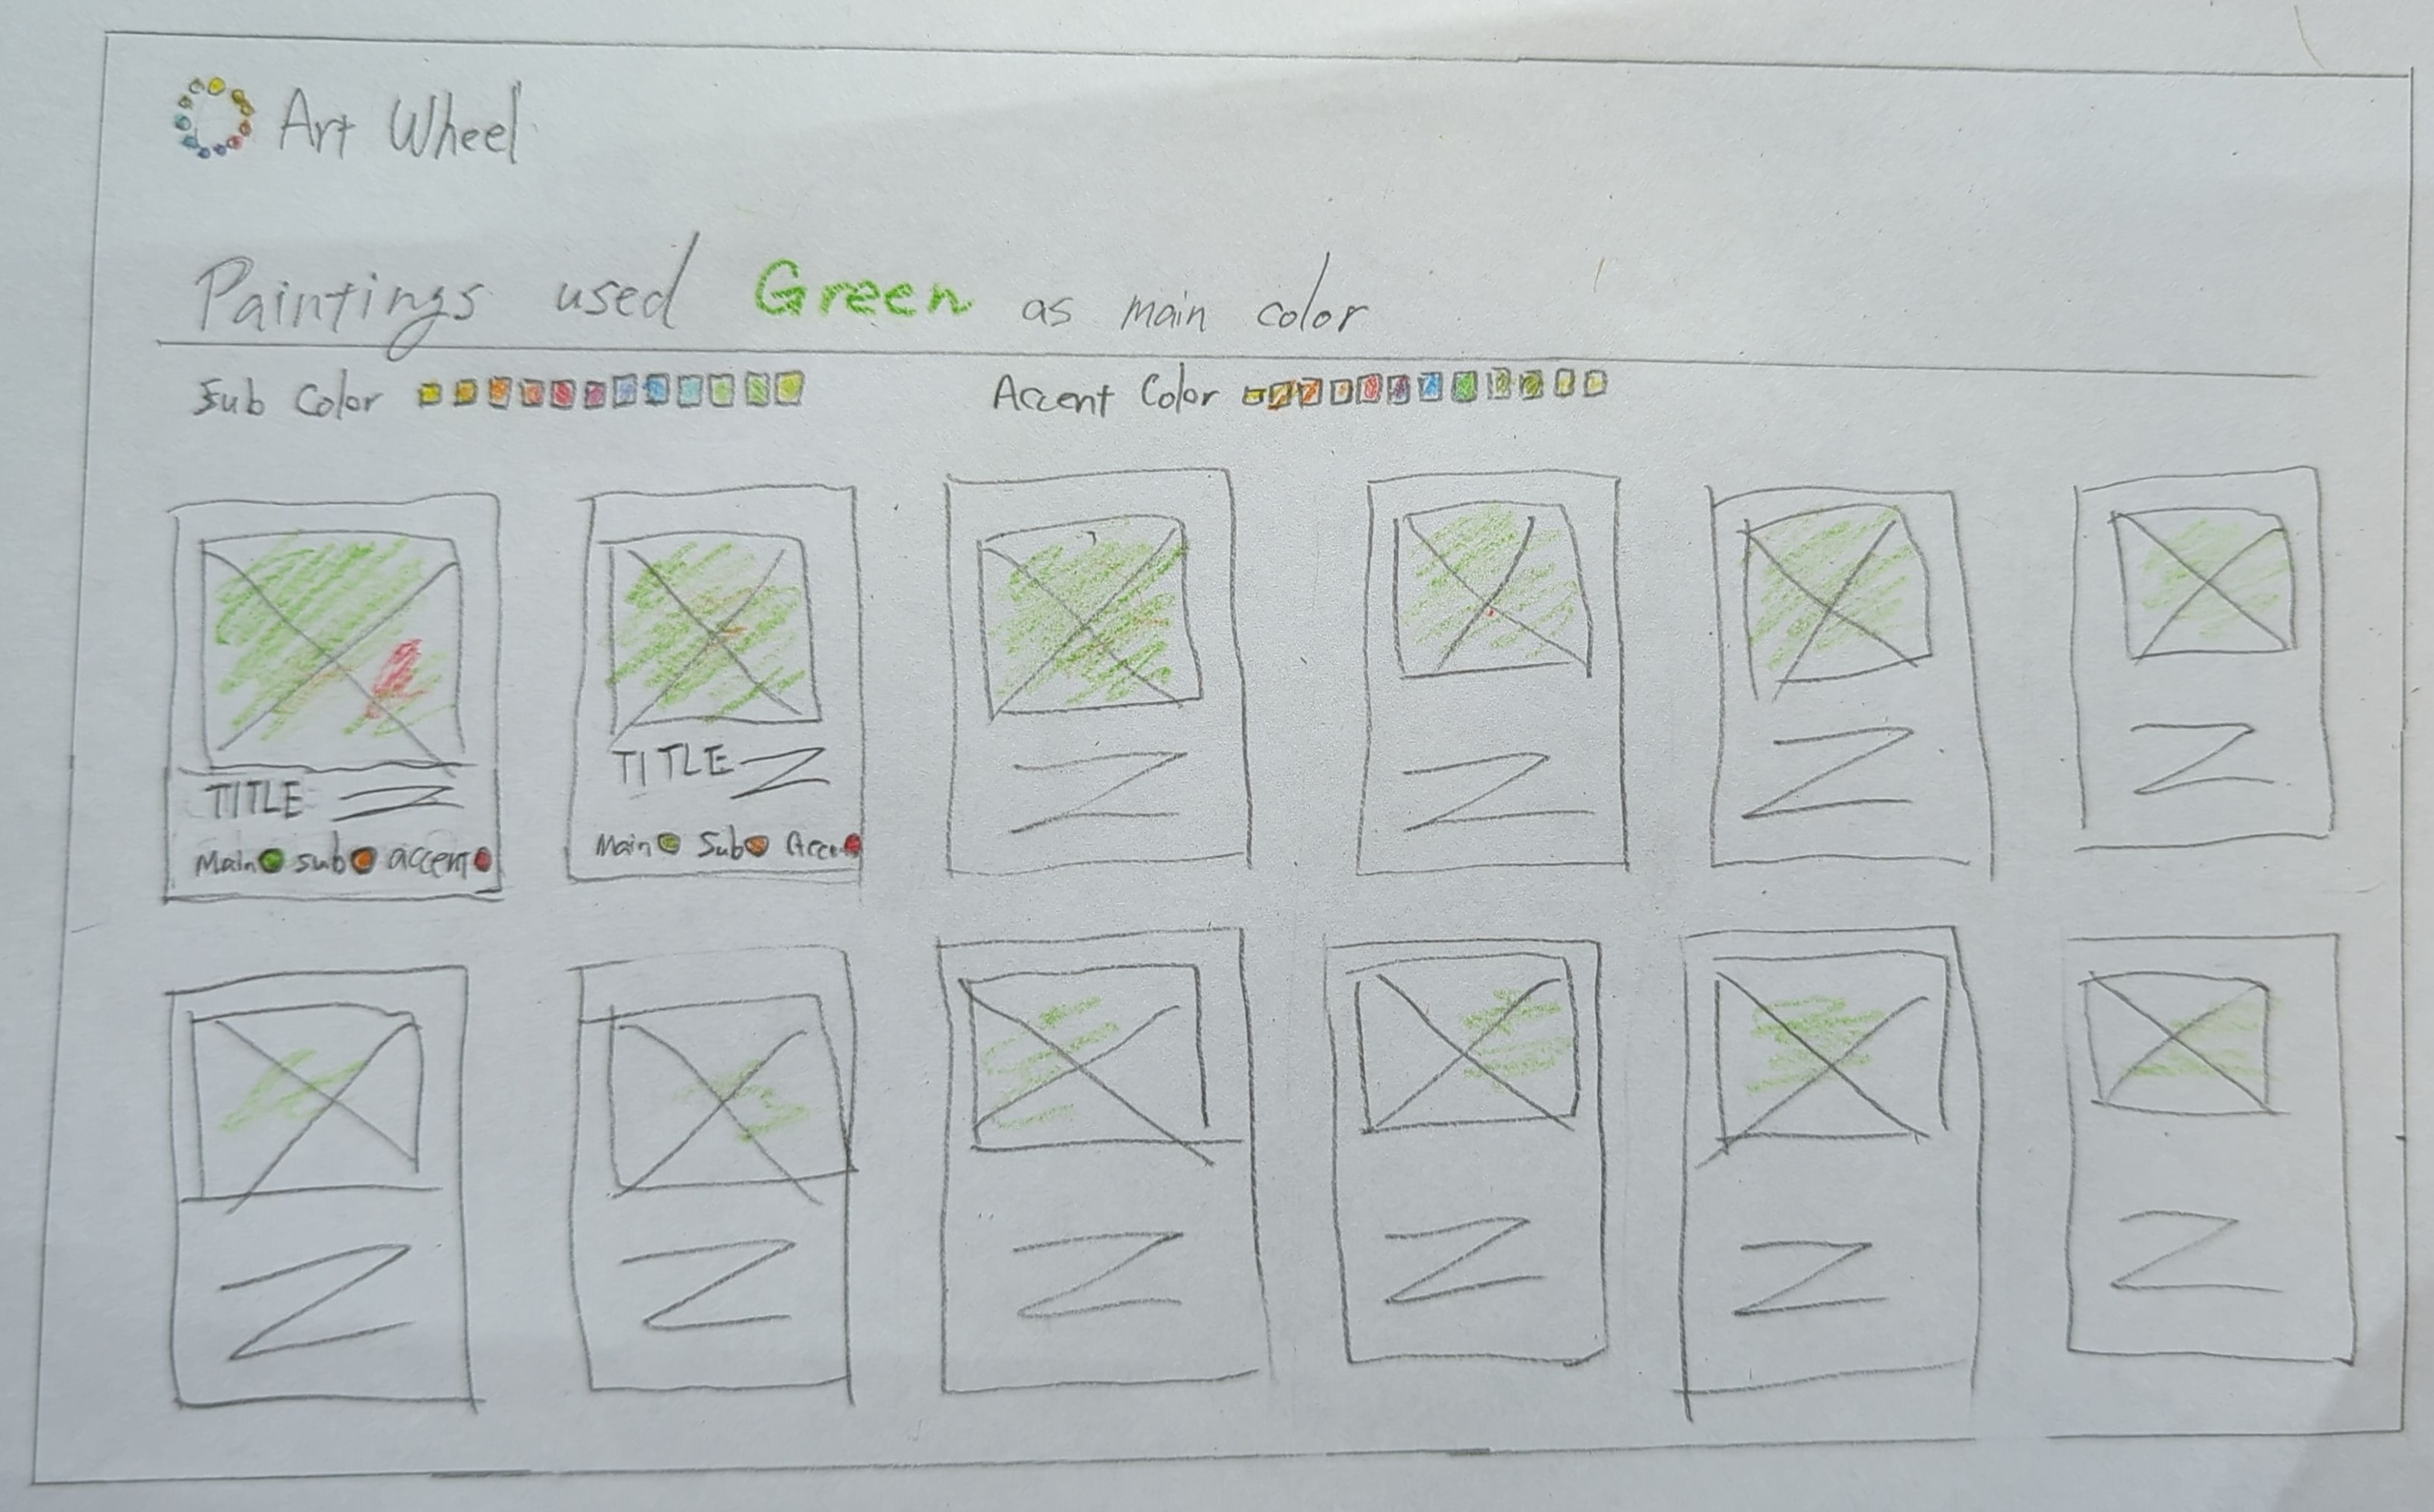 Art Wheel
Paintings used Green as main color
Sub Color
Accent Color
TITLE
Main sub accent
TITLE
Main Sub